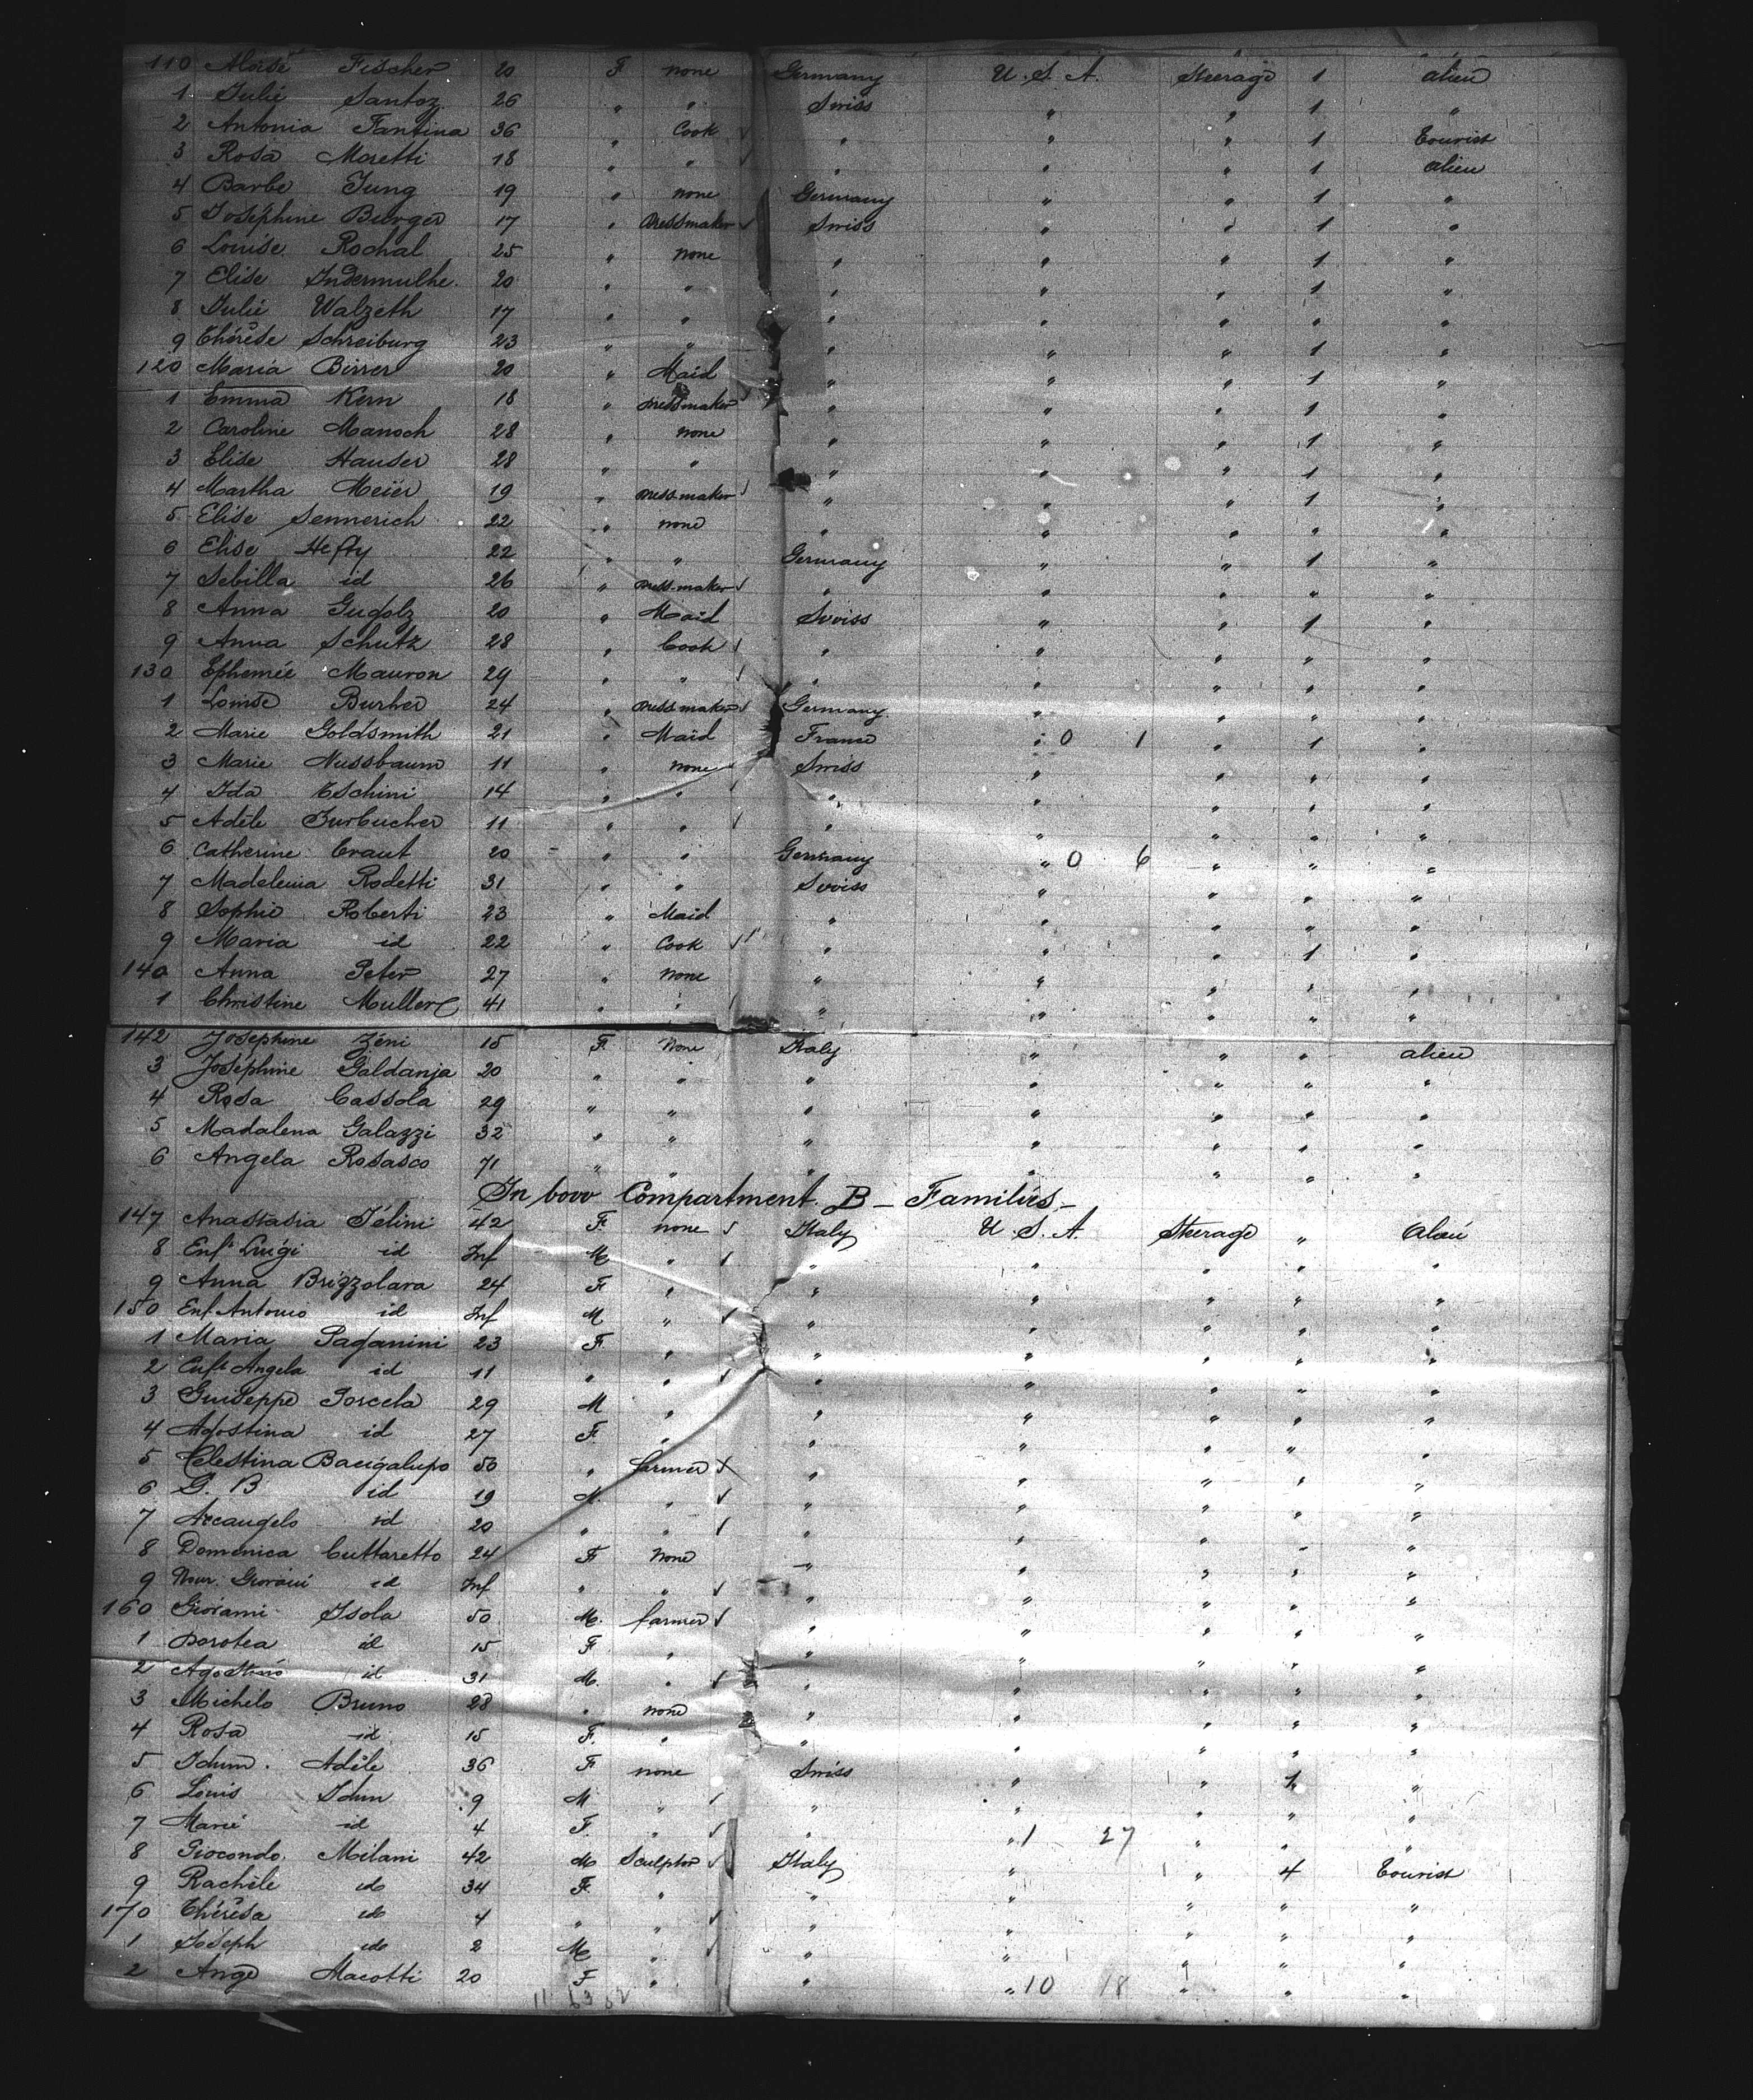 110 Aloïse Fischer 20 F none Germany U. S. A. Steerage 1 alien
1 Julie Santoz 26 " " Swiss " " 1 "
2 Antonia Fantina 36 " Cook " " " 1 Tourist
3 Rosa Moretti 18 " " " " " 1 alien
4 Barbe Jung 19 " none Germany " " 1 "
5 Joséphine Burger 17 " Dressmaker Swiss " " 1 "
6 Louise Rochal 25 " none " " " 1 "
7 Elise Indermulhe 20 " " " " " 1 "
8 Julie Walzeth 17 " " " " " " "
9 Thérèse Schreiburg 23 " " " " " 1 "
120 Maria Birrer 20 " Maid " " " 1 "
1 Emma Kern 18 " Dressmaker " " " 1 "
2 Caroline Manoch 28 " none " " " 1 "
3 Elise Hauser 28 " " " " " 1 "
4 Martha Meïer 19 " Dressmaker " " " 1 "
5 Elise Sennerich 22 " none " " " " "
6 Elise Hefty 22 " " Germany " " 1 "
7 Sebilla id 26 " Dressmaker " " " " "
8 Anna Gugolz 20 " Maid Swiss " " 1 "
9 Anna Schutz 28 " Cook " " " " "
130 Ephemie Mauron 29 " " " " " " "
1 Louise Burher 24 " Dressmaker Germany " " " "
2 Marie Goldsmith 21 " Maid France " 0 1 " 1 "
3 Marie Nussbaum 11 " none Swiss " " " "
4 Ida Eschini 14 " " " " " " "
5 Adèle Zurbucher 11 " " " " " " "
6 Catherine Craut 20 " " Germany " 0 6 " " "
7 Madelenia Rodetti 31 " " Swiss " " " "
8 Sophie Roberti 23 " Maid " " " " "
9 Maria id 22 " Cook " " " 1 "
140 Anna Peter 27 " none " " " " "
1 Christine Muller 41 " " " " " " "
142 Joséphine Zéni 15 F. None Italy " " " alien
3 Joséphine Galdanja 20 " " " " " " "
4 Rosa Cassola 29 " " " " " " "
5 Madalena Galazzi 32 " " " " " " "
6 Angela Rosasco 71 " " " " " " "
In bow Compartment B – Families –
147 Anastasia Télini 42 F. none Italy U. S. A. Steerage " Alien
8 Enft Luigi id Inf M " " " " " "
9 Anna Brizzolara 24 F " " " " " "
150 Enf. Antonio id Inf M " " " " " "
1 Maria Paganini 23 F " " " " " "
2 Enft Angela id 11 " " " " " " "
3 Guiseppe Porcela 29 M " " " " " "
4 Agostina id 27 F. " " " " " "
5 Celestina Bacigalupo 50 " farmer " " " " "
6 G. B id 19 M. " " " " " "
7 Arcangelo id 20 " " " " " " "
8 Domenica Cuttaretto 24 F None " " " " "
9 Nour. Giovani id Inf " " " " " " "
160 Giovanni Isola 50 M. farmer " " " " "
1 Dorotea id 15 F " " " " " "
2 Agostino id 31 M. " " " " " "
3 Michele Bruno 28 " none " " " " "
4 Rosa id 15 F. " " " " " "
5 Idum. Adèle 36 F none Swiss " " 1 "
6 Louis Idum 9 M " " " " " "
7 Marie id 4 F. " " " 1 27 " " "
8 Giocondo Milani 42 M Sculptor Italy " " 4 Tourist
9 Rachèle id 34 F. " " " " " "
170 Thérèsa id 4 " " " " " " "
1 Joseph id 2 M " " " " " "
2 Ange Macotti 20 F " " " 10 18 " " "